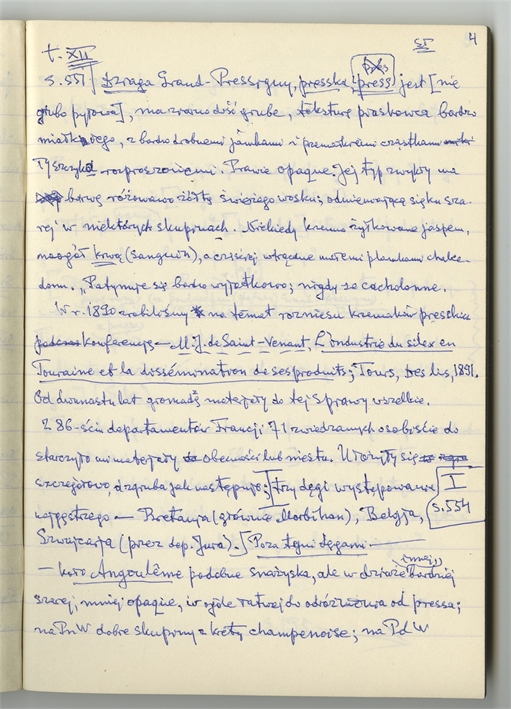 4
t. XII
s. 551 Dziaga Grand-Pressigny, presska, press jest [nie
grubo pyłowa], ma ziarno dość grube, teksturę piaskową bardzo
z bardzo drobnemi jamkami i przemokremi cząstkami
rozproszonemi. Prawie opaque. Jej typ zwykły ma
barwę różowawo żółtą świeżego wosku; odmieniającą się ku sza-
rej w niektórych skupinach. Niekiedy kremo żyłkowane jaspem,
naogół krwą (sanguin), a częściej wtrędne małemi plamkami chalce-
donu. Patynuje się bardzo wyjątkowo; nigdy ze cacholonne.
W r. 1890 zrobiliśmy na temat rozniesu krzemaków presska
konferencję — M. J. de Saint-Venant, L'industrie du silex en
Touraine et la dissémination de ses produits; Tours, 1891.
Od dwunastu lat gromadzę materjały do tej sprawy wszelkie.
Z 86-ściu departamentów Francji 71 zwiedzanych osobiście do-
starczyło mi materjały obecności lub niesta. Ułożyły się
szczegółowo, z gruba jak następuje: trzy dęgi występowania I
najgęstszego — Bretanja (głównie Morbihan), Belgja, s. 554
Szwajcarja (przez dep. Jura). Poza temi dęgami
— koło Angoulême podobne snażyska, ale w dziaże innej, bardziej
szarej, mniej opaque, i w ogóle łatwej do odróżnienia od pressa;
na PnW dobre skupiny z kréty champenoise; na PdW